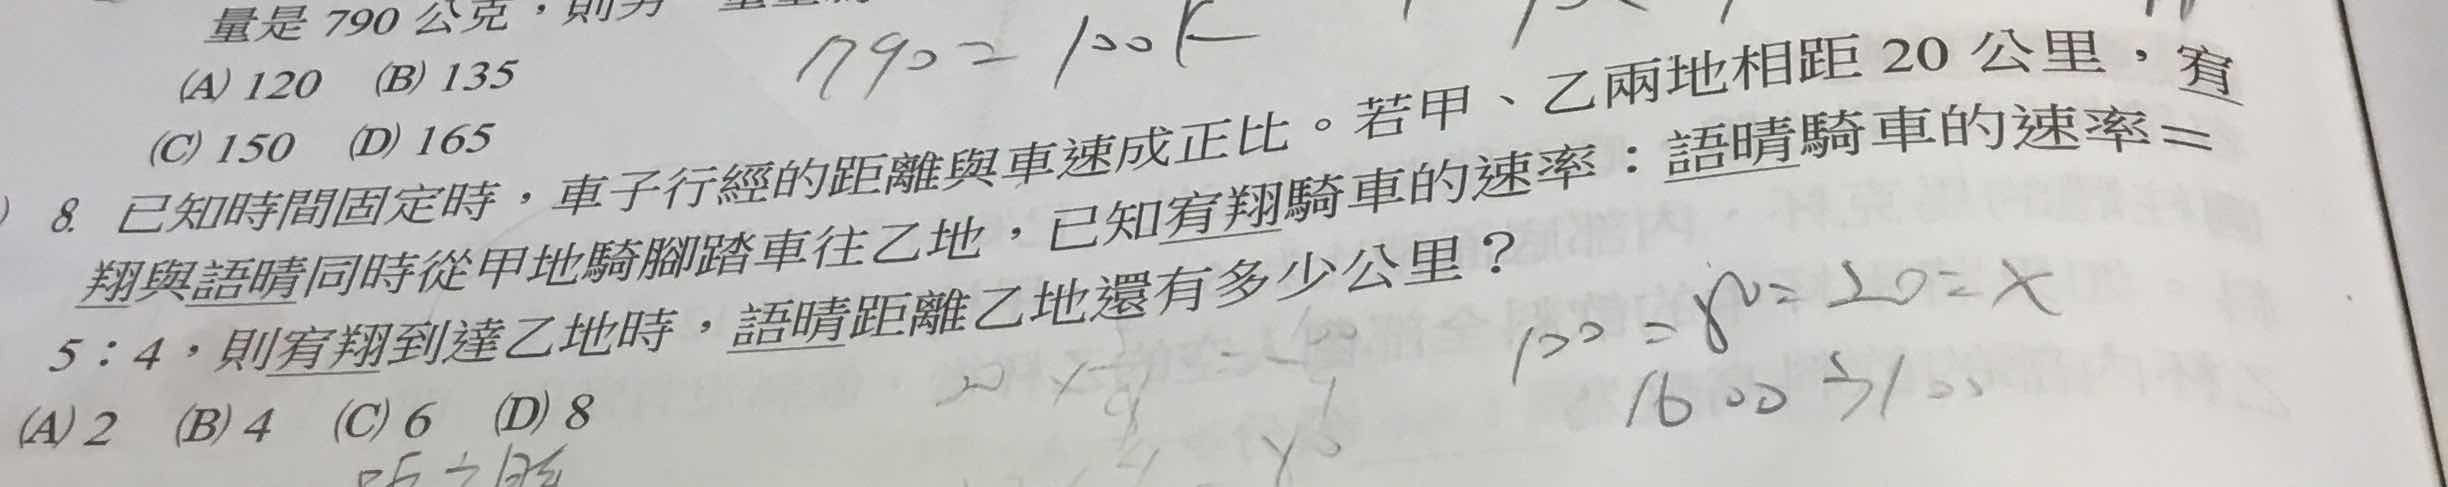 量是 790 公克，則另一
790 = 100k
(A) 120 (B) 135
(C) 150 (D) 165
8. 已知時間固定時，車子行經的距離與車速成正比。若甲、乙兩地相距 20 公里，宥
翔與語晴同時從甲地騎腳踏車往乙地，已知宥翔騎車的速率：語晴騎車的速率＝
5：4，則宥翔到達乙地時，語晴距離乙地還有多少公里？
100 = 80 = 20 = x
1600 ÷ 100
(A) 2 (B) 4 (C) 6 (D) 8